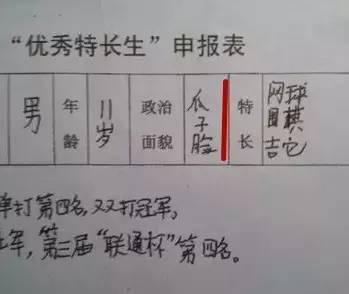 “优秀特长生”申报表
男
年龄
11岁
政治
面貌
瓜子脸
特长
网球
围棋
吉它
单打第四名,双打冠军,
军,第三届“联通杯”第四名。